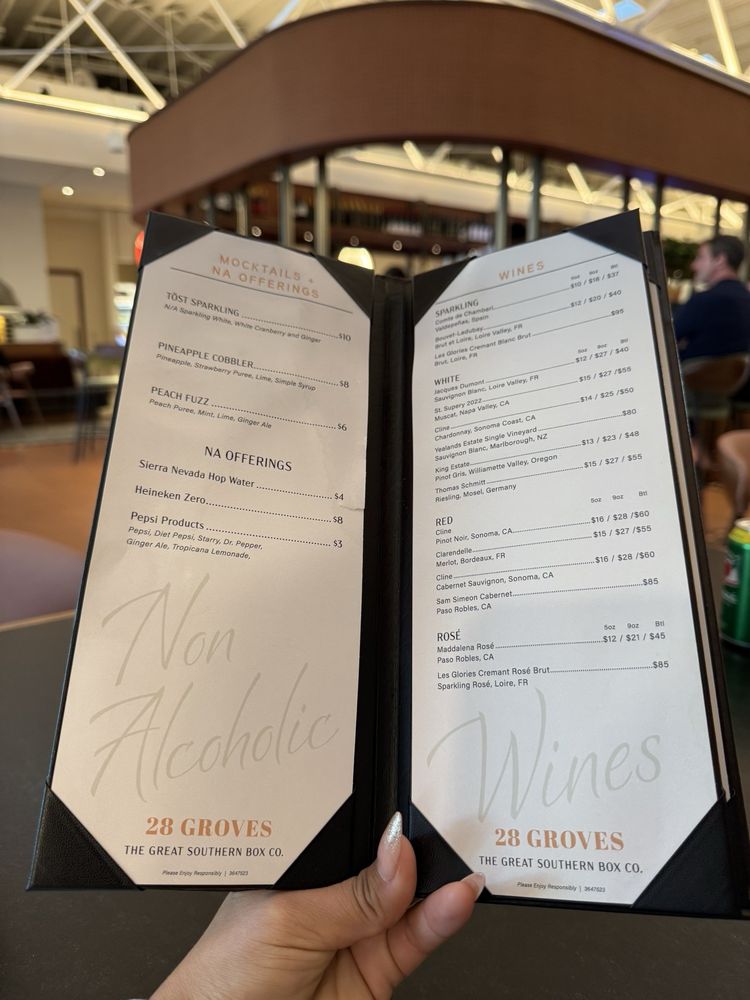 MOCKTAILS +
NA OFFERINGS
TÖST SPARKLING ........ $10
N/A Sparkling White, White Cranberry and Ginger
PINEAPPLE COBBLER ........ $8
Pineapple, Strawberry Puree, Lime, Simple Syrup
PEACH FUZZ ........ $6
Peach Puree, Mint, Lime, Ginger Ale
NA OFFERINGS
Sierra Nevada Hop Water ........ $4
Heineken Zero ........ $8
Pepsi Products ........ $3
Pepsi, Diet Pepsi, Starry, Dr. Pepper,
Ginger Ale, Tropicana Lemonade,
Non
Alcoholic
28 GROVES
THE GREAT SOUTHERN BOX CO.
Please Enjoy Responsibly | 3647523
WINES
SPARKLING 5oz 9oz Btl
Comte de Chamberi ........ $10 / $16 / $37
Valdepeñas, Spain
Bouvet-Ladubay ........ $12 / $20 / $40
Brut et Loire, Loire Valley, FR
Les Glories Cremant Blanc Brut ........ $95
Brut, Loire, FR
WHITE 5oz 9oz Btl
Jacques Dumont ........ $12 / $27 / $40
Sauvignon Blanc, Loire Valley, FR
St. Supery 2022 ........ $15 / $27 /$55
Muscat, Napa Valley, CA
Cline ........ $14 / $25 /$50
Chardonnay, Sonoma Coast, CA
Yealands Estate Single Vineyard ........ $80
Sauvignon Blanc, Marlborough, NZ
King Estate ........ $13 / $23 / $48
Pinot Gris, Williamette Valley, Oregon
Thomas Schmitt ........ $15 / $27 / $55
Riesling, Mosel, Germany
RED 5oz 9oz Btl
Cline
Pinot Noir, Sonoma, CA ........ $16 / $28 /$60
Clarendelle ........ $15 / $27 /$55
Merlot, Bordeaux, FR
Cline ........ $16 / $28 /$60
Cabernet Sauvignon, Sonoma, CA
Sam Simeon Cabernet ........ $85
Paso Robles, CA
ROSÉ 5oz 9oz Btl
Maddalena Rosé ........ $12 / $21 / $45
Paso Robles, CA
Les Glories Cremant Rosé Brut ........ $85
Sparkling Rosé, Loire, FR
Wines
28 GROVES
THE GREAT SOUTHERN BOX CO.
Please Enjoy Responsibly | 3647523